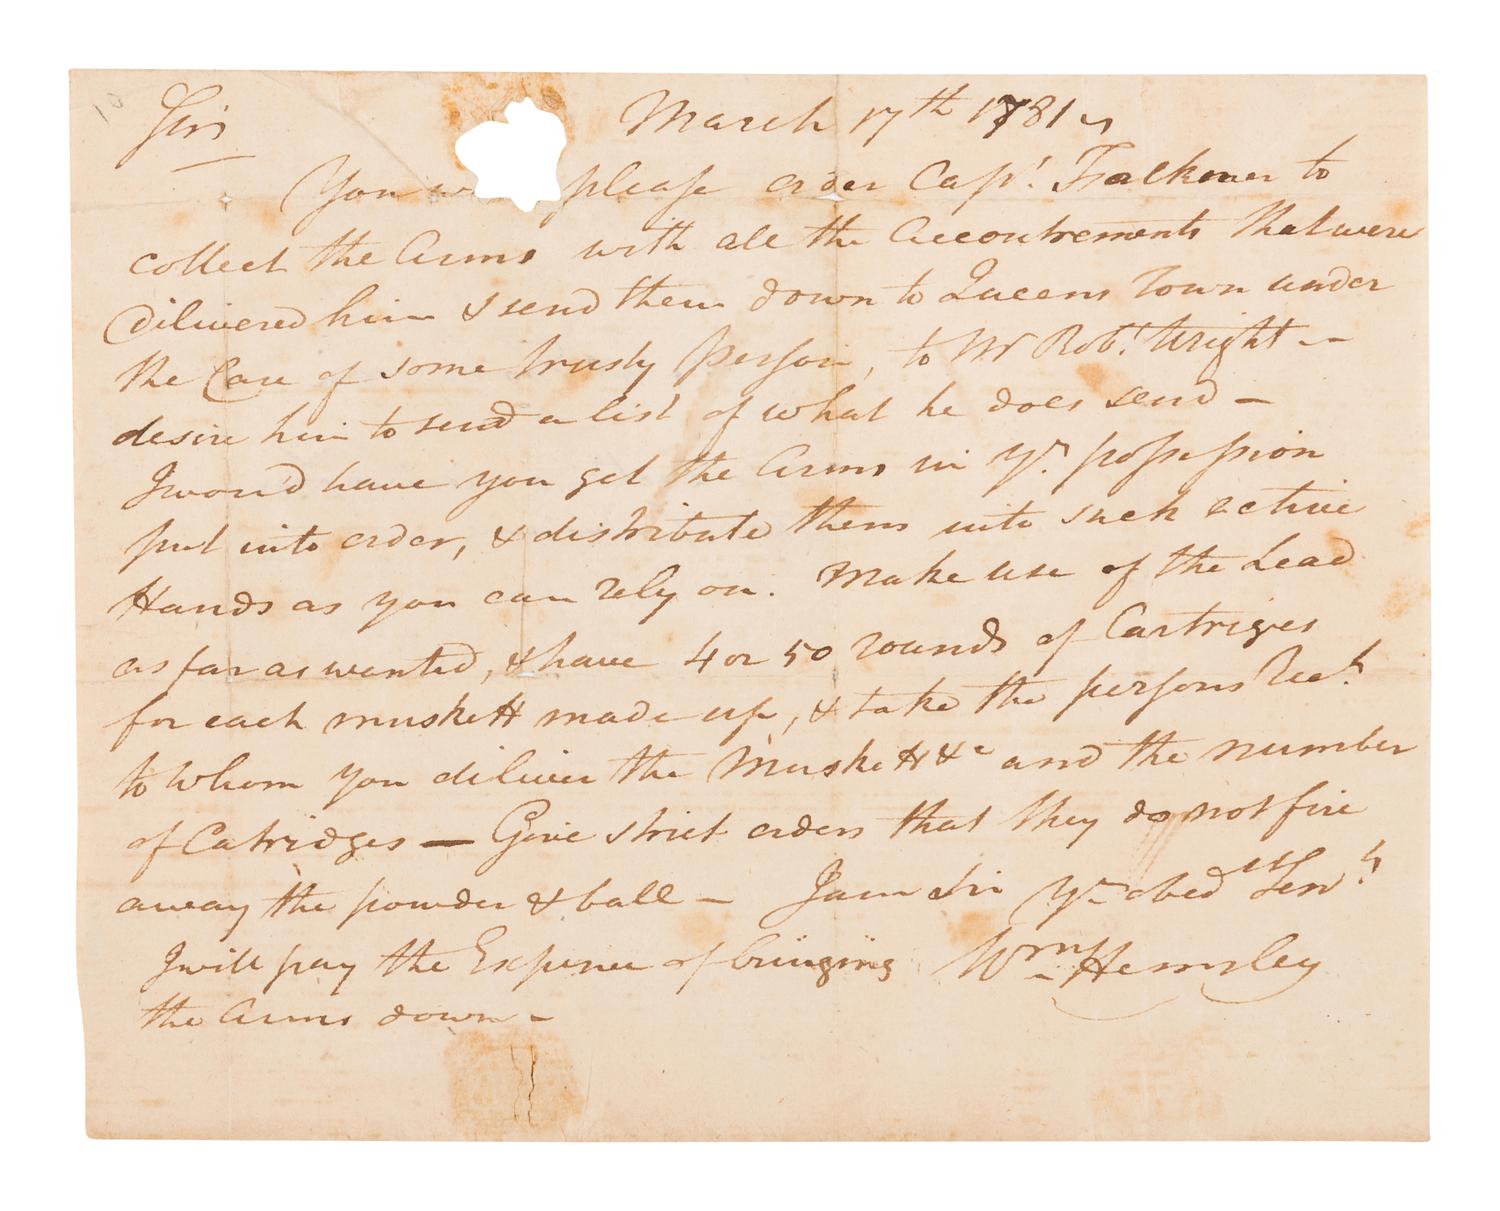 Sir March 17th 1781
You w please order Capt. Falkner to
collect the Arms with all the Accoutrements that were
dilivered him & send them down to Queens Town under
the Care of some trusty person, to Mr Robt. Wright --
desire him to send a list of what he does send -
I wou'd have you get the Arms in yr. possession
put into order, & distribute them into such active
Hands as you can rely on. Make use of the Lead
as far as wanted, & have 4 or 50 rounds of Cartriges
for each muskett made up, & take the persons Rect.
to whom you diliver the Muskett &c and the number
of Catridges — Give strict orders that they do not fire
away the powder & ball - I am Sir Yr obed Servt
I will pay the Expence of bringing Wm Hemsley
the Arms down -